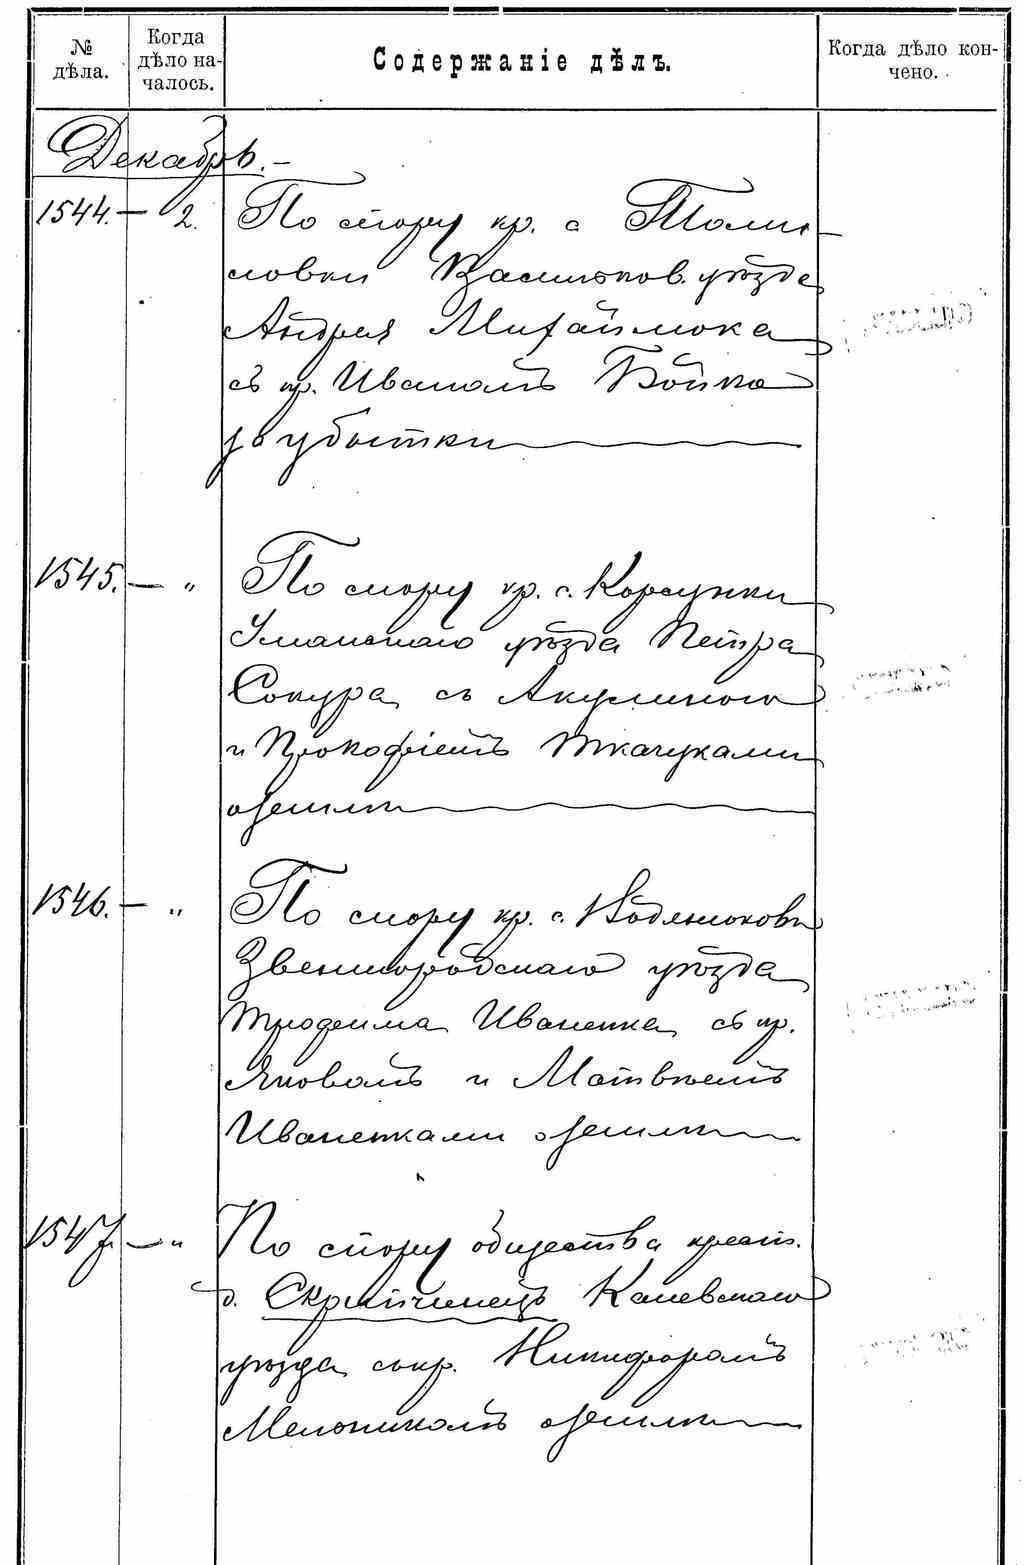 № дѣла.
Когда дѣло на-
чалось.
Содержаніе дѣлъ.
Когда дѣло кон-
чено.
Декабрь.
1544. — 2. По спору кр. с
ловки Васильков. уѣзда
Андрея Михайлюка
съ кр. Иваномъ Бойко
за убытки
1545. — „ По спору кр. с. Корсунки
Уманскаго уѣзда Петра
Сокура съ Акулиною
и Прокофіемъ Ткачуками
о земли
1546. — „ По спору кр. с. Водяниковки
Звенигородскаго уѣзда
Трофима Иваненка съ кр.
Яковомъ и Матвѣемъ
Иваненками о земли
1547. — „ По спору общества крест.
д. Скрипчинецъ Каневскаго
уѣзда съ кр. Никифоромъ
Мельникомъ о земли